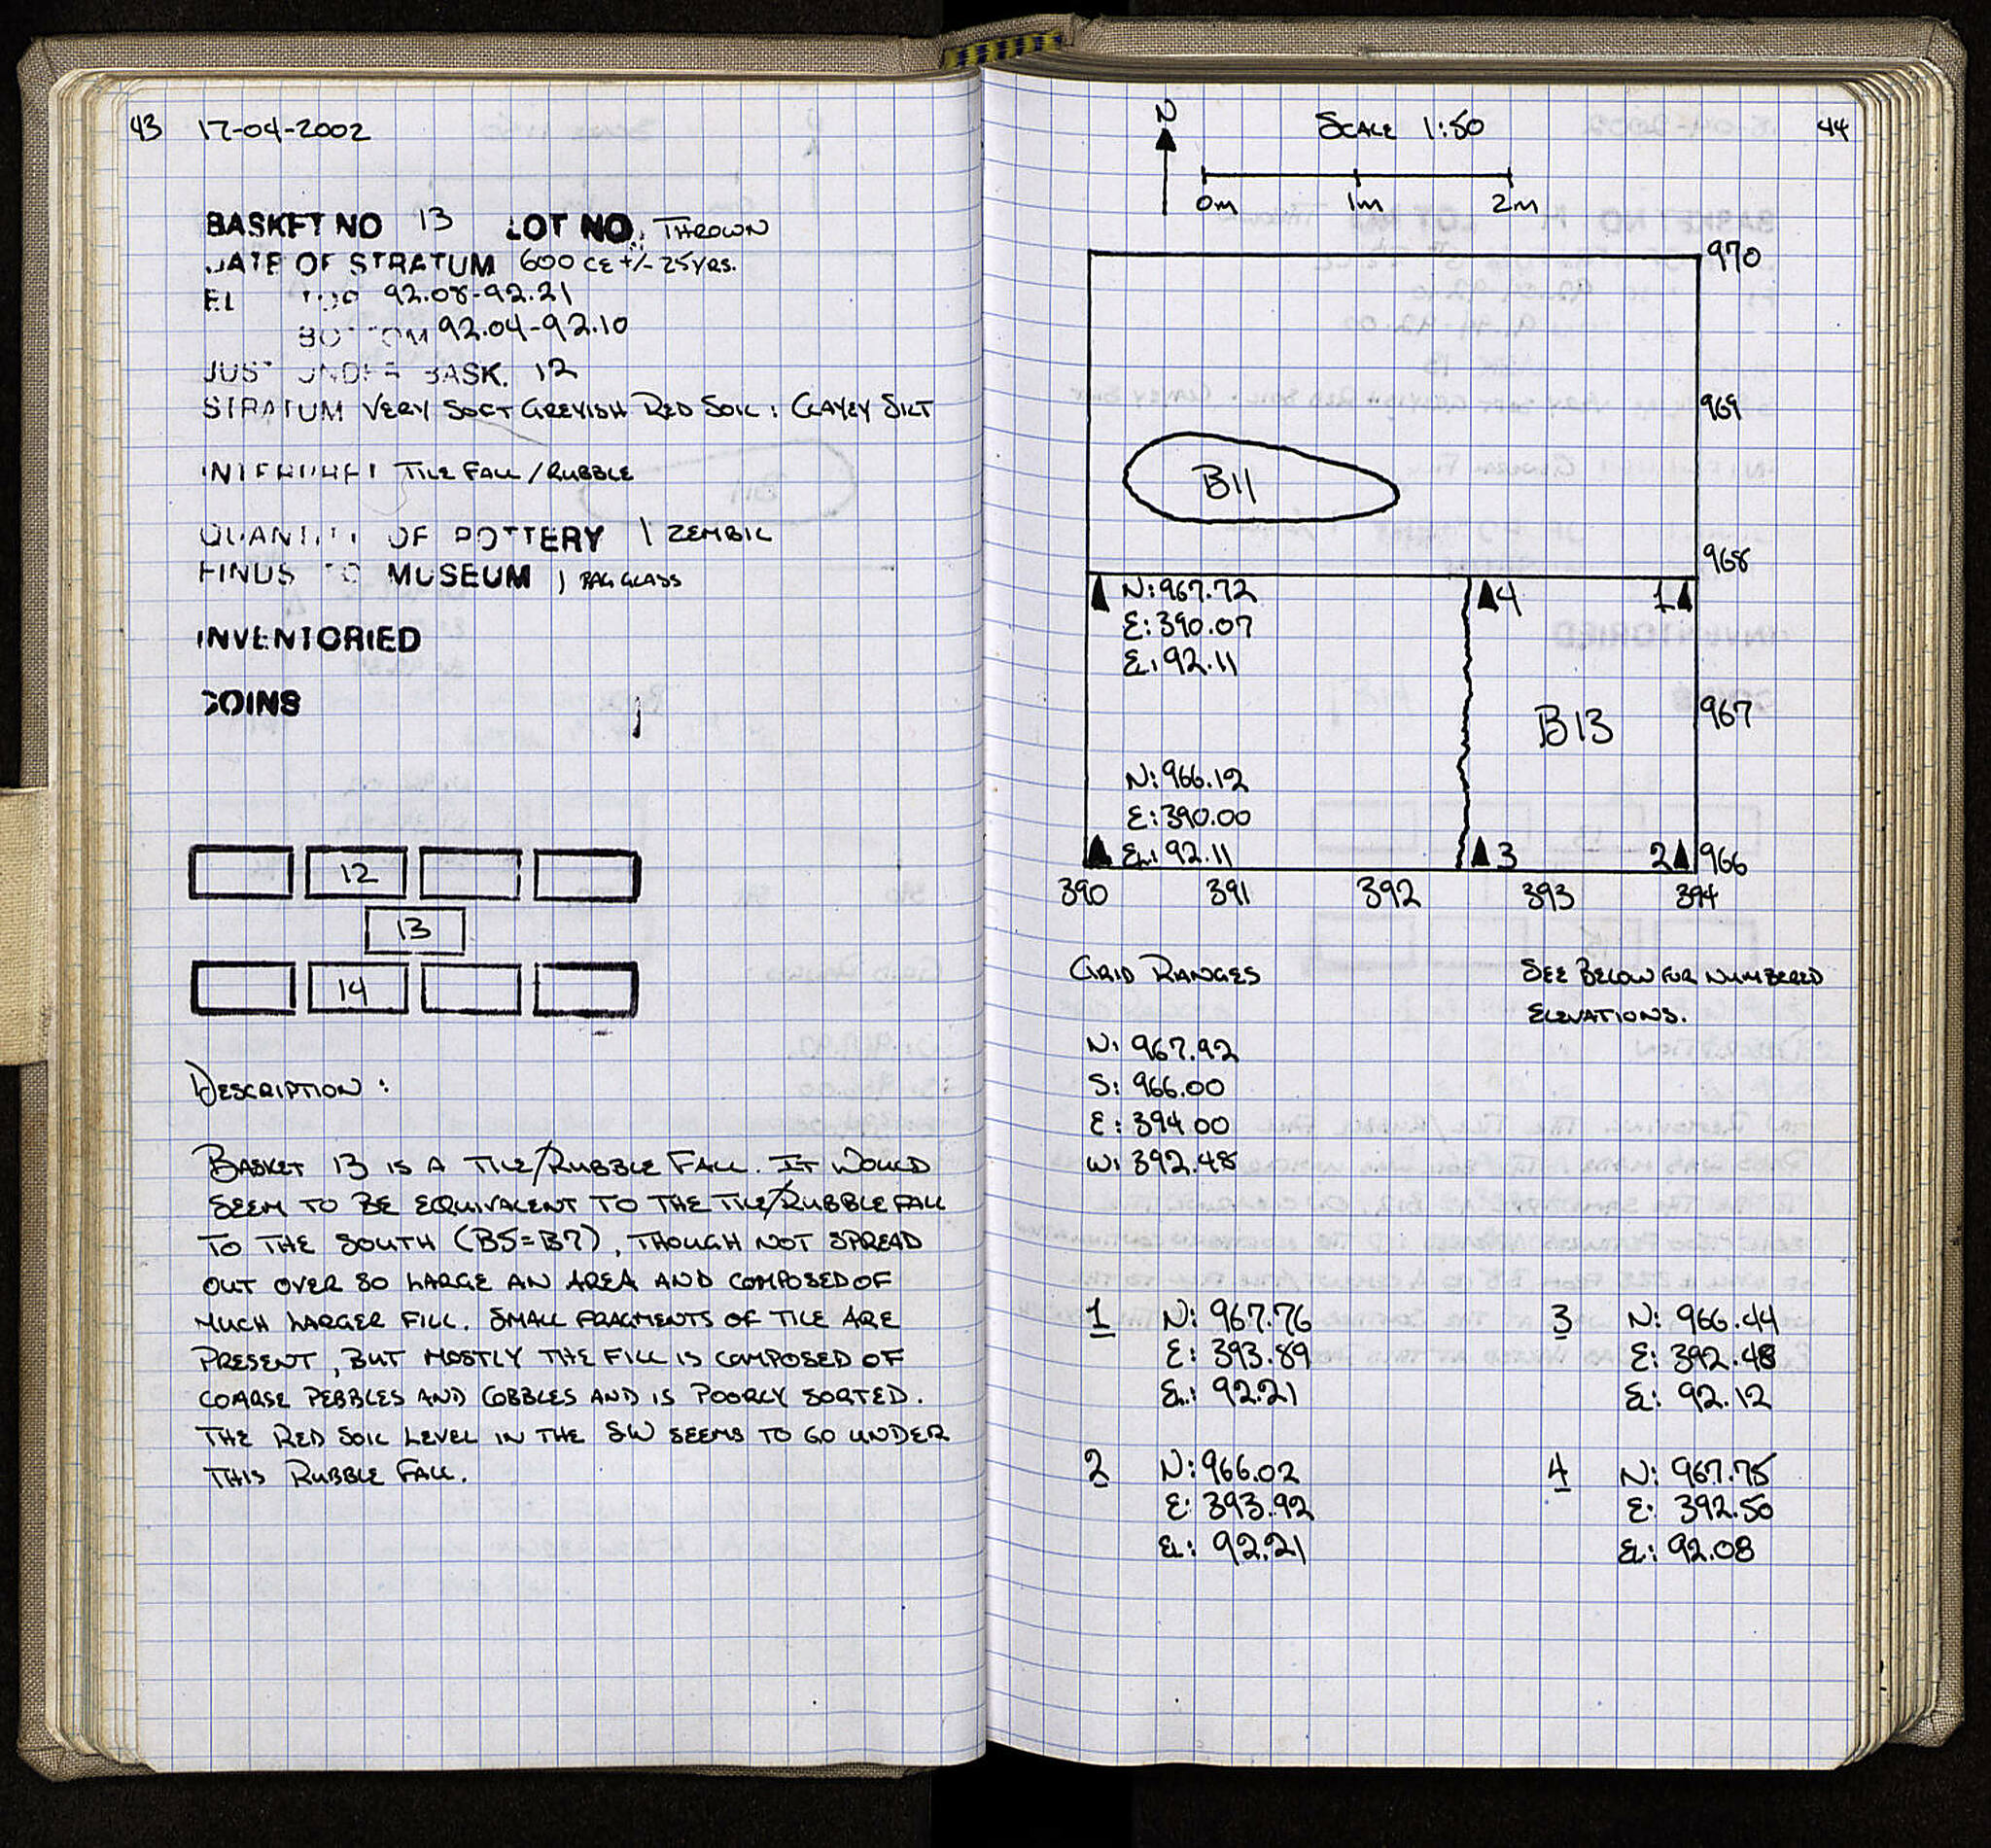 43 17-04-2002
BASKET NO 13 LOT NO. THROWN
DATE OF STRATUM 600 CE +/- 25 YRS.
EL TOP 92.08-92.21
BOTTOM 92.04-92.10
JUST UNDER BASK. 12
STRATUM VERY SOFT GREYISH RED SOIL : CLAYEY SILT
INTERPRET TILE FALL / RUBBLE
QUANTITY OF POTTERY 1 ZEMBIL
FINDS TO MUSEUM 1 BAG GLASS
INVENTORIED
COINS
12
13
14
DESCRIPTION :
BASKET 13 IS A TILE/RUBBLE FALL. IT WOULD
SEEM TO BE EQUIVALENT TO THE TILE/RUBBLE FALL
TO THE SOUTH (B5=B7), THOUGH NOT SPREAD
OUT OVER SO LARGE AN AREA AND COMPOSED OF
MUCH LARGER FILL. SMALL FRAGMENTS OF TILE ARE
PRESENT, BUT MOSTLY THE FILL IS COMPOSED OF
COARSE PEBBLES AND COBBLES AND IS POORLY SORTED.
THE RED SOIL LEVEL IN THE SW SEEMS TO GO UNDER
THIS RUBBLE FALL.
N SCALE 1:50 44
0m 1m 2m
970
969
B11
968
N: 967.72 4 1
E: 390.07
EL: 92.11
B13 967
N: 966.12
E: 390.00
EL: 92.11 3 2 966
390 391 392 393 394
GRID RANGES SEE BELOW FOR NUMBERED
ELEVATIONS.
N: 967.92
S: 966.00
E: 394.00
W: 392.48
1 N: 967.76 3 N: 966.44
E: 393.89 E: 392.48
EL: 92.21 EL: 92.12
2 N: 966.02 4 N: 967.75
E: 393.92 E: 392.50
EL: 92.21 EL: 92.08